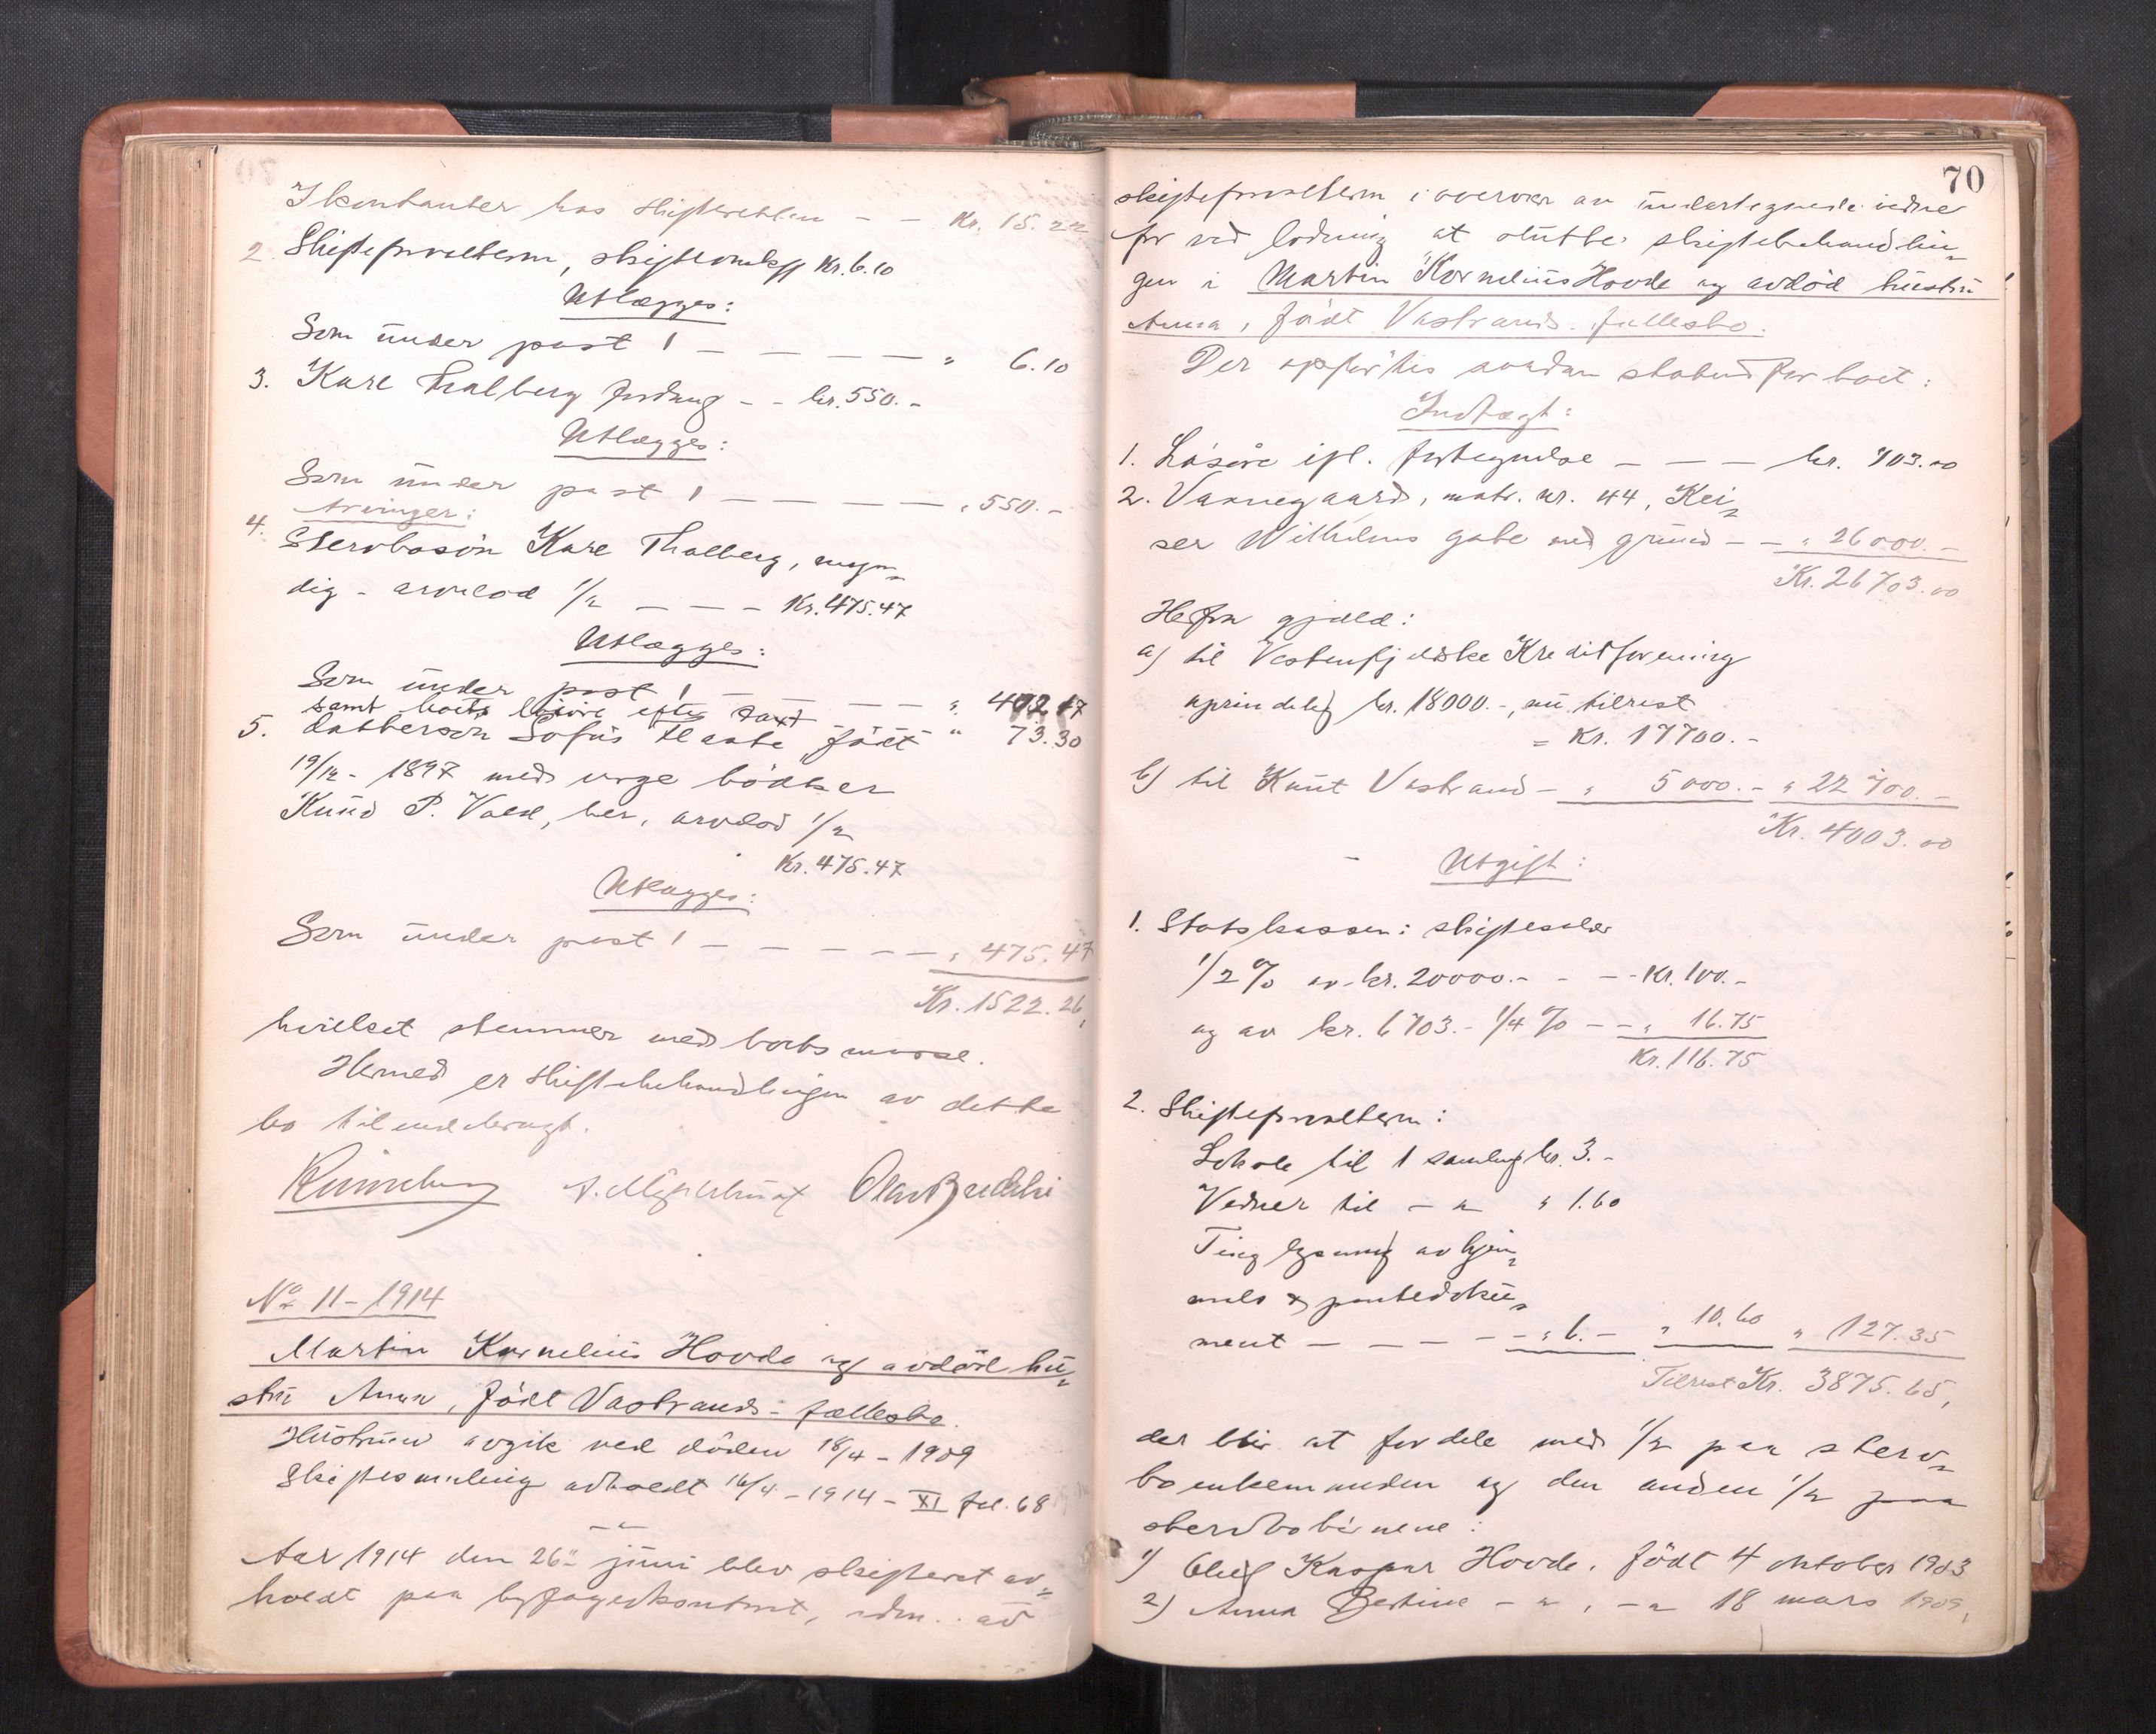 I kontanter hos skifteretten - - Kr. 15.22
2 Skifteforvalteren, skifteomkg Kr. 6.10
Utlægges:
Som under post 1 - - - - - " 6.10
3. Kare Thalberg fordring - - kr. 550.-
Utlægges:
Som under post 1 - - - - - " 550.-
Arvinger:
4. Stervbosøn Kare Thalberg, myn=
dig - arvelod 1/2 - - - Kr. 475.47
Utlægges:
Som under post 1 - - - - " 402.17
samt boets løsøre efter taxt - " 73.30
5. dattersøn Sofus født
19/12 - 1897 med verge bødker
Knud P. Vold, her, arvelod 1/2
Kr. 475.47
Utlægges:
Som under post 1 - - - - - - " 475.47
Kr. 1522.26,
hvilket stemmer med boets masse.
Hermed er skiftebehandlingen av dette
bo tilendebragt.
No 11 - 1914
Martin Kornelius Hovde og avdød hu=
stru Anna, født Vastrands - fællesbo.
Hustruen avgik ved døden 18/4 - 1909
Skiftesamling avholdt 16/4 - 1914 - XI fol. 68
Aar 1914 den 26" juni blev skifteret av=
holdt paa byfogedkontoret, adm. av
70
skifteforvalteren i overvær av undertegnede vidner
for ved lodning at slutte skiftebehandlin=
gen i Martin Kornelius Hovde og avdød hustru
Anna, født Vastrands. fællesbo.
Der opførtes saadan status for boet:
Indtægt:
1. Løsøre ifl. fortegnelse - - - kr. 703.00
2. Vaaneg aard, matr. nr. 44, Kei=
ser Wilhelms gate med grund - - " 26000.-
Kr. 26703.00
Herfra gjæld:
a) til Vestenfjeldske Kreditforening
oprindelig kr. 18000.-, nu tilrest
= Kr. 17700.-
b) til Knut Vastrand - " 5000.- " 22700.-
Kr. 4003.00
Utgift:
1. Statskassen: skiftesalær
1/2 % av kr. 20000.- - - - Kr. 100.-
og av kr. 6703.- 1/4 % - - " 16.75
Kr. 116.75
2. Skifteforvalteren:
Lokale til 1 samling kr. 3.-
Vidner til - " - " 1.60
Tinglysning av hjem=
mels & pantedoku=
ment - - - - - " 6.- " 10.60 " 127.35
Tilrest Kr. 3875.65,
der blir at fordele med 1/2 paa sterv=
boenkemanden og den anden 1/2 paa
stervbobørnene:
1) Oluf Kaspar Hovde, født 4 oktober 1903
2) Anna Bertine - " , - " 18 mars 1909,